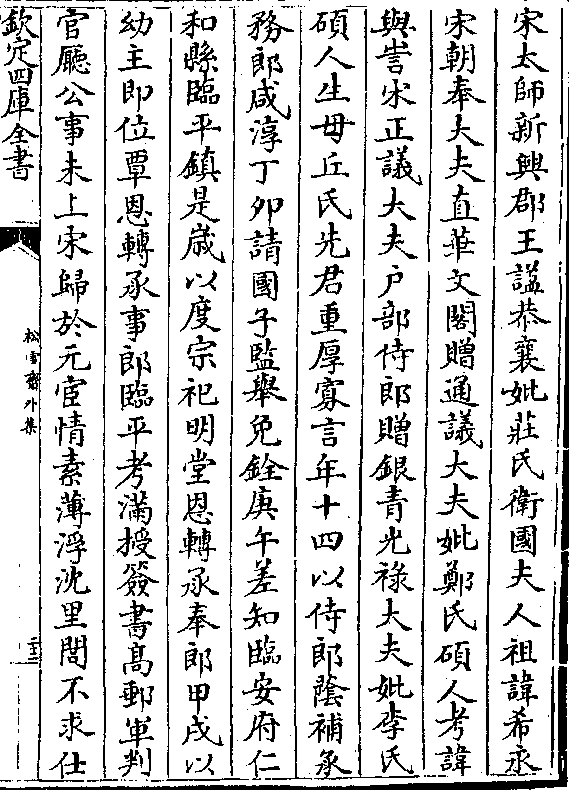 宋太師新興郡王謚恭襄妣莊氏衛國夫人祖諱希永
宋朝奉大夫直華文閣贈通議大夫妣鄭氏碩人考諱
與訔宋正議大夫户部侍郎贈銀青光祿大夫妣李氏
碩人生母丘氏先君重厚寡言年十四以侍郎蔭補承
務郎咸淳丁夘請國子監舉免銓庚午差知臨安府仁
和縣臨平鎮是嵗以度宗祀明堂恩轉承奉郎甲戌以
幼主即位覃恩轉承事郎臨平考滿授簽書髙郵軍判
官廳公事未上宋歸於元宦情素薄浮沈里閭不求仕
欽定四庫全書
松雪齋外集
二十三